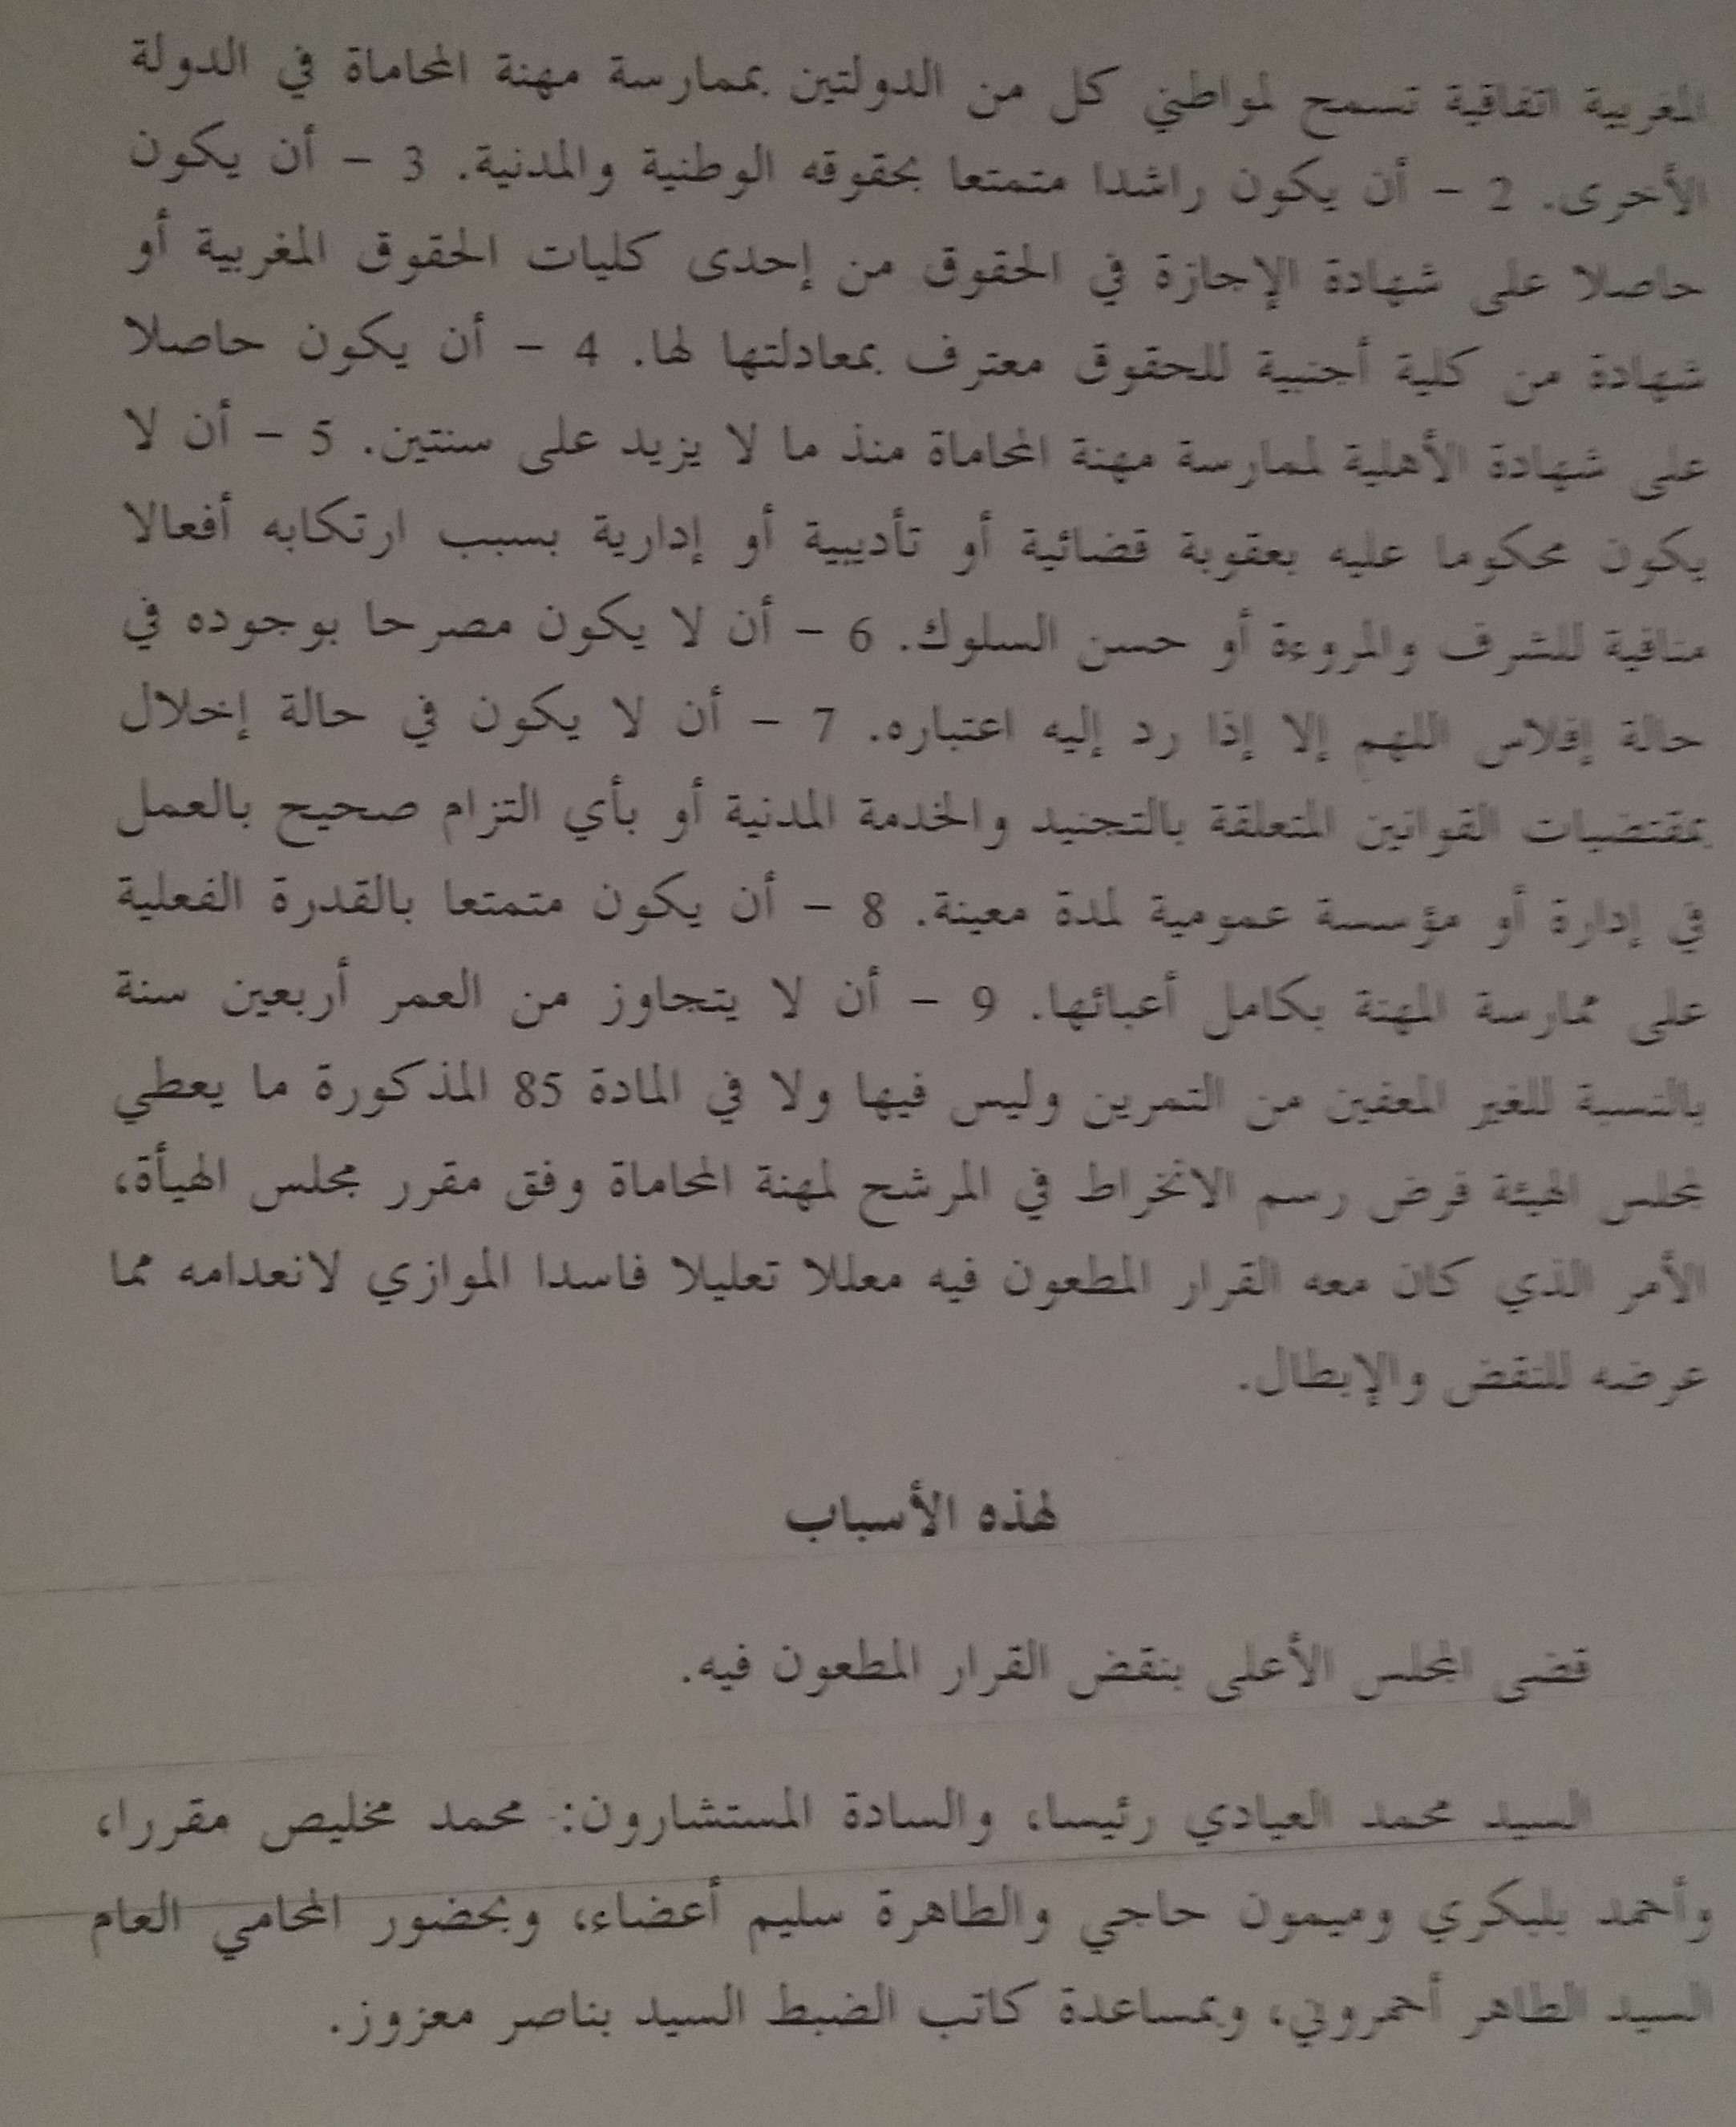 المغربية اتفاقية تسمح لمواطني كل من الدولتين بممارسة مهنة المحاماة في الدولة
الأخرى. 2 – أن يكون راشدا متمتعا بحقوقه الوطنية والمدنية. 3 – أن يكون
حاصلا على شهادة الإجازة في الحقوق من إحدى كليات الحقوق المغربية أو
شهادة من كلية أجنبية للحقوق معترف بمعادلتها لها. 4 – أن يكون حاصلا
على شهادة الأهلية لممارسة مهنة المحاماة منذ ما لا يزيد على سنتين. 5 – أن لا
يكون محكوما عليه بعقوبة قضائية أو تأديبية أو إدارية بسبب ارتكابه أفعالا
منافية للشرف والمروءة أو حسن السلوك. 6 – أن لا يكون مصرحا بوجوده في
حالة إفلاس اللهم إلا إذا رد إليه اعتباره. 7 – أن لا يكون في حالة إخلال
بمقتضيات القوانين المتعلقة بالتجنيد والخدمة المدنية أو بأي التزام صحيح بالعمل
في إدارة أو مؤسسة عمومية لمدة معينة. 8 – أن يكون متمتعا بالقدرة الفعلية
على ممارسة المهنة بكامل أعبائها. 9 – أن لا يتجاوز من العمر أربعين سنة
بالنسبة للغير المعفين من التمرين وليس فيها ولا في المادة 85 المذكورة ما يعطي
لمجلس الهيئة فرض رسم الانخراط في المرشح لمهنة المحاماة وفق مقرر مجلس الهيأة،
الأمر الذي كان معه القرار المطعون فيه معللا تعليلا فاسدا الموازي لانعدامه مما
عرضه للنقض والإبطال.
لهذه الأسباب
قضى المجلس الأعلى بنقض القرار المطعون فيه.
السيد محمد العيادي رئيسا، والسادة المستشارون: محمد مخليص مقررا،
وأحمد بلبكري وميمون حاجي والطاهرة سليم أعضاء، وبحضور المحامي العام
السيد الطاهر أحمروني، وبمساعدة كاتب الضبط السيد بناصر معزوز.